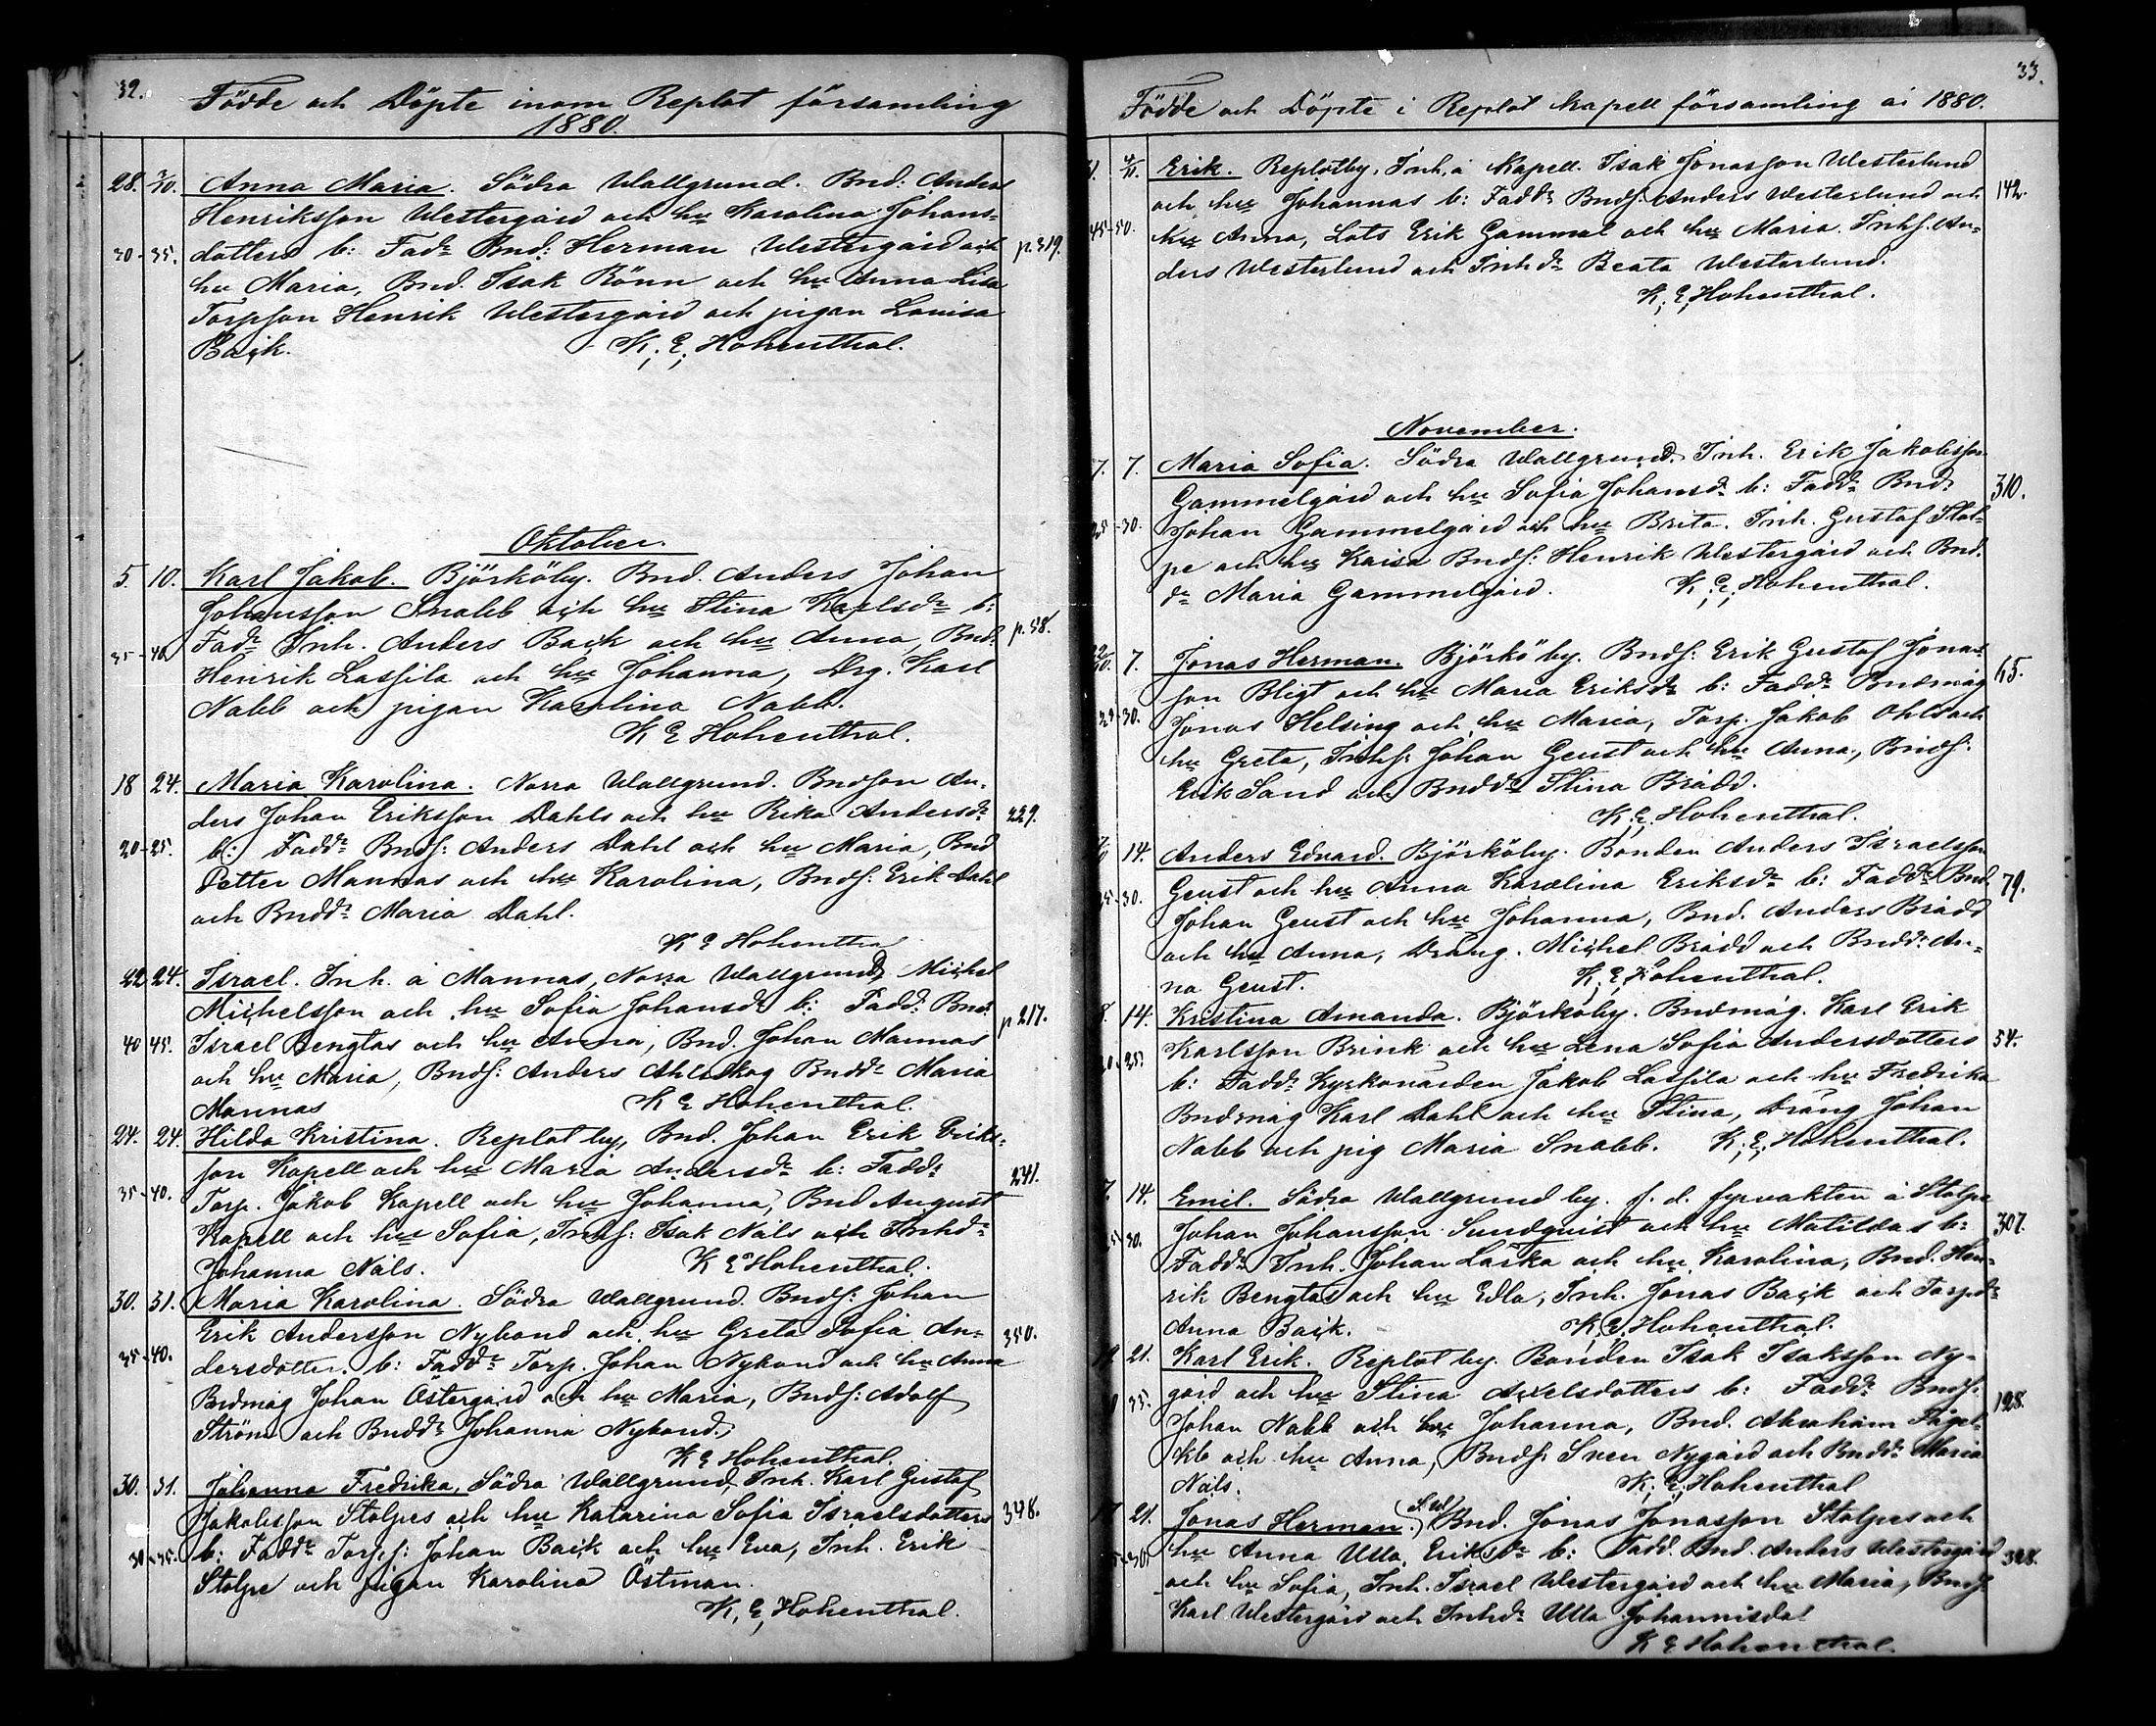 32.
Födde och Döpte inom Replot församling
1880.
28. 3/10. Anna Maria. Södra Wallgrund. Bnd: Anders
Henriksson Westergård och hu Karolina Johans-
30-35. dotters b: Fadr Bnd: Herman Westergård och p. 319.
hu Maria, Bnd. Isak Rönn och hu Anna Lisa
Torpson Henrik Westergård och pigan Lovisa
Back. K. E. Hohenthal.
Oktober.
5. 10. Karl Jakob. Björköby. Bnd. Anders Johan
Johansson Snabb och hu Stina Karlsdr b:
35-40 Fadr Inh. Anders Back och hu Anna, Bnd: p. 58.
Henrik Lassila och hu Johanna, Drg. Karl
Nabb och pigan Karolina Nabb.
K E Hohenthal.
18 24. Maria Karolina. Norra Wallgrund. Bndson An-
ders Johan Eriksson Dahls och hu Rika Andersdr 229.
20-25. b: Faddr Bnds: Anders Dahl och hu Maria, Bnd
Petter Mannas och hu Karolina, Bnds: Erik Dahl
och Bnddr Maria Dahl.
K E Hohentha
22 24. Israel. Inh. å Mannas, Norra Wallgrund, Michel
Michelsson och hu Sofia Johansdr b: Fadd: Bnd. p 217.
40 45. Israel Bengtas och hu Anna, Bnd. Johan Mannas
och hu Maria, Bnds: Anders Ahlskog Bnddr Maria
Mannas K E Hohenthal.
24. 24. Hilda Kristina. Replot by, Bnd. Johan Erik Eriks-
son Kapell och hu Maria Andersdr b: Faddr 241.
35-40. Torp. Jakob Kapell och hu Johanna, Bnd August
Kapell och hu Sofia, Inhs: Isak Nåls och Inhdr
Johanna Nåls. K E Hohenthal.
30. 31. Maria Karolina. Södra Wallgrund. Bnds: Johan
Erik Andersson Nybond och hu Greta Sofia An- 350.
35-40. dersdotter. b: Faddr Torp. Johan Nybond och hu Anna
Bndmåg Johan Östergård och hu Maria, Bnds: Adolf
Ström och Bnddr Johanna Nybond.
K E Hohenthal.
30. 31. Johanna Fredrika, Södra Wallgrund, Inh. Karl Gustaf
Jakobsson Stolpes och hu Katarina Sofia Israelsdotters 348.
30-35. b: Faddr Torps: Johan Back och hu Eva, Inh. Erik
Stolpe och pigan Karolina Östman.
K. E. Hohenthal.
33.
Födde och Döpte i Replot kapell församling år 1880.
Erik. Replotby. Inh. å Kapell. Isak Jonasson Westerlund
och hu Johannas b: Faddr Bnds: Anders Westerlund och 142.
45-50. hu Anna, Lots Erik Gammal och hu Maria. Inhs. An-
ders Westerlund och Inhdr Beata Westerlund.
K. E. Hohenthal.
November.
7. 7. Maria Sofia. Södra Wallgrund. Inh. Erik Jakobsson
Gammelgård och hu Sofia Johansdr b: Faddr Bnd: 310.
25-30. Johan Gammelgård och hu Brita. Inh. Gustaf Stol-
pe och hu Kaisa Bnds: Henrik Westergård och Bnd.
dr Maria Gammelgård. K. E. Hohenthal.
7. Jonas Herman. Björköby. Bnds: Erik Gustaf Jonas-
son Bligt och hu Maria Eriksdr b: Faddr Bndmåg 65.
30. Jonas Helsing och hu Maria, Torp. Jakob Ohls och
hu Greta, Inhs: Johan Geust och hu Anna, Bnds:
Erik Sand och Bnddr Stina Brådd.
K. E. Hohenthal.
14. Anders Edvard. Björköby. Bonden Anders Israelsson
Geust och hu Anna Karolina Eriksdr b: Faddr Bnd. 79.
25-30. Johan Geust och hu Johanna, Bnd. Anders Brådd
och hu Anna, Dräng. Michel Brådd och Bnddr An-
na Geust. K. E. Hohenthal.
8. 14. Kristina Amanda. Björköby. Bndmåg. Karl Erik
Karlsson Brink och hu Lena Sofia Andersdotters 54.
20 25. b: Faddr Kyrkovärden Jakob Lassila och hu Fredrika
Bndmåg Karl Dahl och hu Stina, Dräng Johan
Nabb och pig Maria Snabb. K. E. Hohenthal.
7. 14. Emil. Södra Wallgrund by. f. d. fyrvakten å Stolpe
Johan Johansson Sundqvist och hu Matildas b: 307.
30. Faddr Inh. Johan Laska och hu Karolina, Bnd. Hen-
rik Bengtas och hu Edla, Inh. Jonas Back och Torpdr
Anna Back. K. E. Hohenthal.
21. Karl Erik. Replot by. Bonden Isak Isaksson Ny-
gård och hu Stina Axelsdotters b: Faddr Bnds: 128.
35. Johan Nabb och hu Johanna, Bnd. Abraham Fågel-
kb och hu Anna, Bnds: Sven Nygård och Bnddr Maria
Nåls. K. E. Hohenthal
17 21. Jonas Herman. (S.W) Bnd. Jonas Jonasson Stolpes och
hu Anna Ulla Eriksdr b: Fadd. Bnd. Anders Westergård 328.
och hu Sofia, Inh. Israel Westergård och hu Maria, Bnds.
Karl Westergård och Inhdr Ulla Johannisdal
K E Hohenthal.